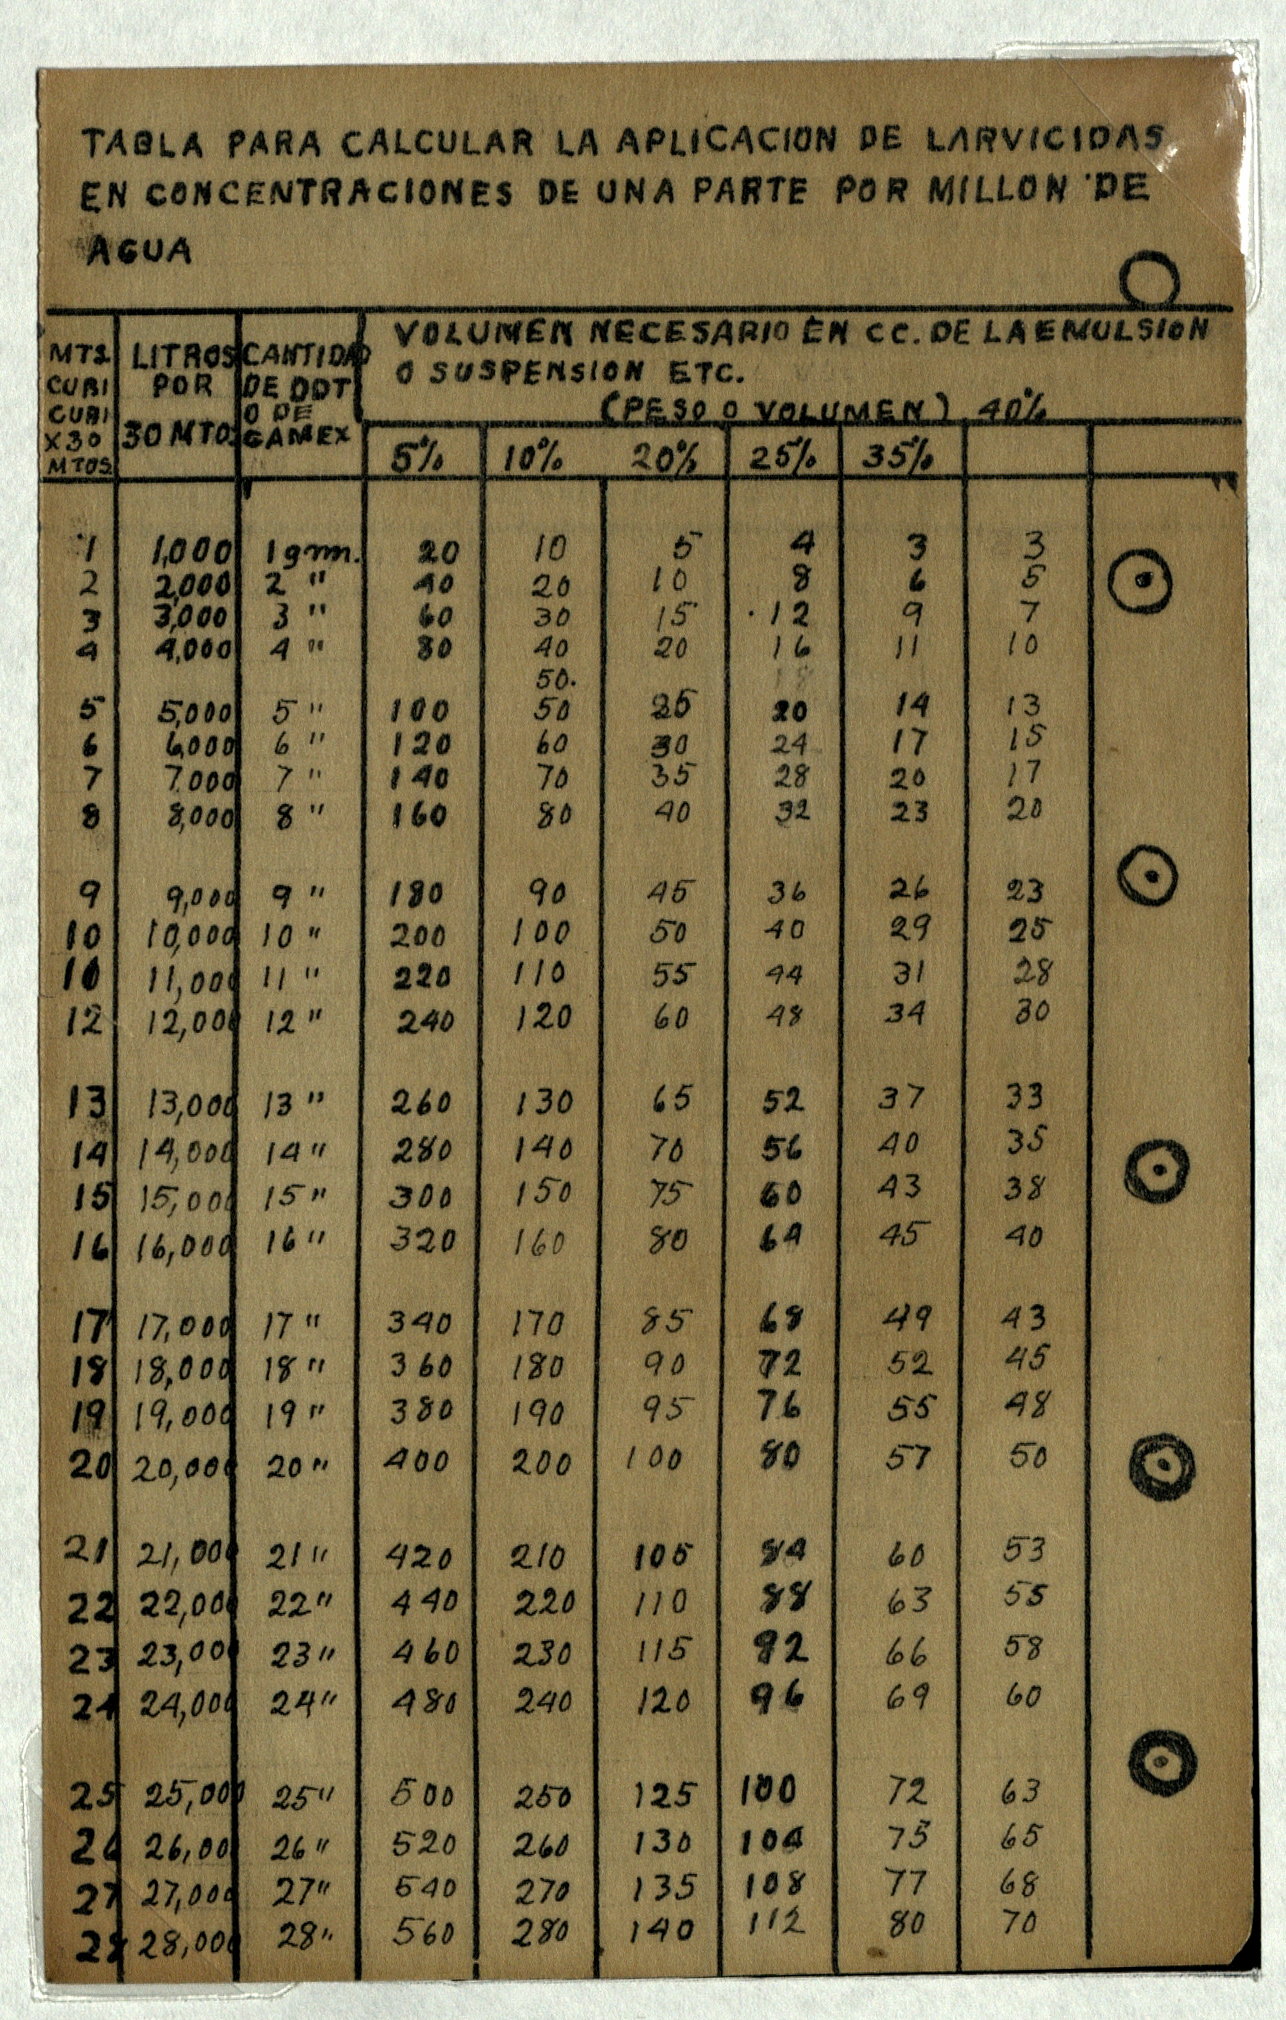 TABLA PARA CALCULAR LA APLICACION DE LARVICIDAS
EN CONCENTRACIONES DE UNA PARTE POR MILLON DE
AGUA
MTS. CUBI CUBI X30 MTOS
LITROS POR 30 MTO.
CANTIDAD DE DDT O DE GAMEX
VOLUMEN NECESARIO EN CC. DE LA EMULSION
O SUSPENSION ETC.
(PESO O VOLUMEN) 40%
5% 10% 20% 25% 35%
1 1,000 1 grm. 20 10 5 4 3 3
2 2,000 2 " 40 20 10 8 6 5
3 3,000 3 " 60 30 15 12 9 7
4 4,000 4 " 80 40 20 16 11 10
50. 18
5 5,000 5 " 100 50 25 20 14 13
6 6,000 6 " 120 60 30 24 17 15
7 7.000 7 " 140 70 35 28 20 17
8 8,000 8 " 160 80 40 32 23 20
9 9,000 9 " 180 90 45 36 26 23
10 10,000 10 " 200 100 50 40 29 25
10 11,000 11 " 220 110 55 44 31 28
12 12,000 12 " 240 120 60 48 34 30
13 13,000 13 " 260 130 65 52 37 33
14 14,000 14 " 280 140 70 56 40 35
15 15,000 15 " 300 150 75 60 43 38
16 16,000 16 " 320 160 80 64 45 40
17 17,000 17 " 340 170 85 68 49 43
18 18,000 18 " 360 180 90 72 52 45
19 19,000 19 " 380 190 95 76 55 48
20 20,000 20 " 400 200 100 80 57 50
21 21,000 21 " 420 210 105 84 60 53
22 22,000 22 " 440 220 110 88 63 55
23 23,000 23 " 460 230 115 92 66 58
24 24,000 24 " 480 240 120 96 69 60
25 25,000 25 " 500 250 125 100 72 63
26 26,000 26 " 520 260 130 104 75 65
27 27,000 27 " 540 270 135 108 77 68
28 28,000 28 " 560 280 140 112 80 70